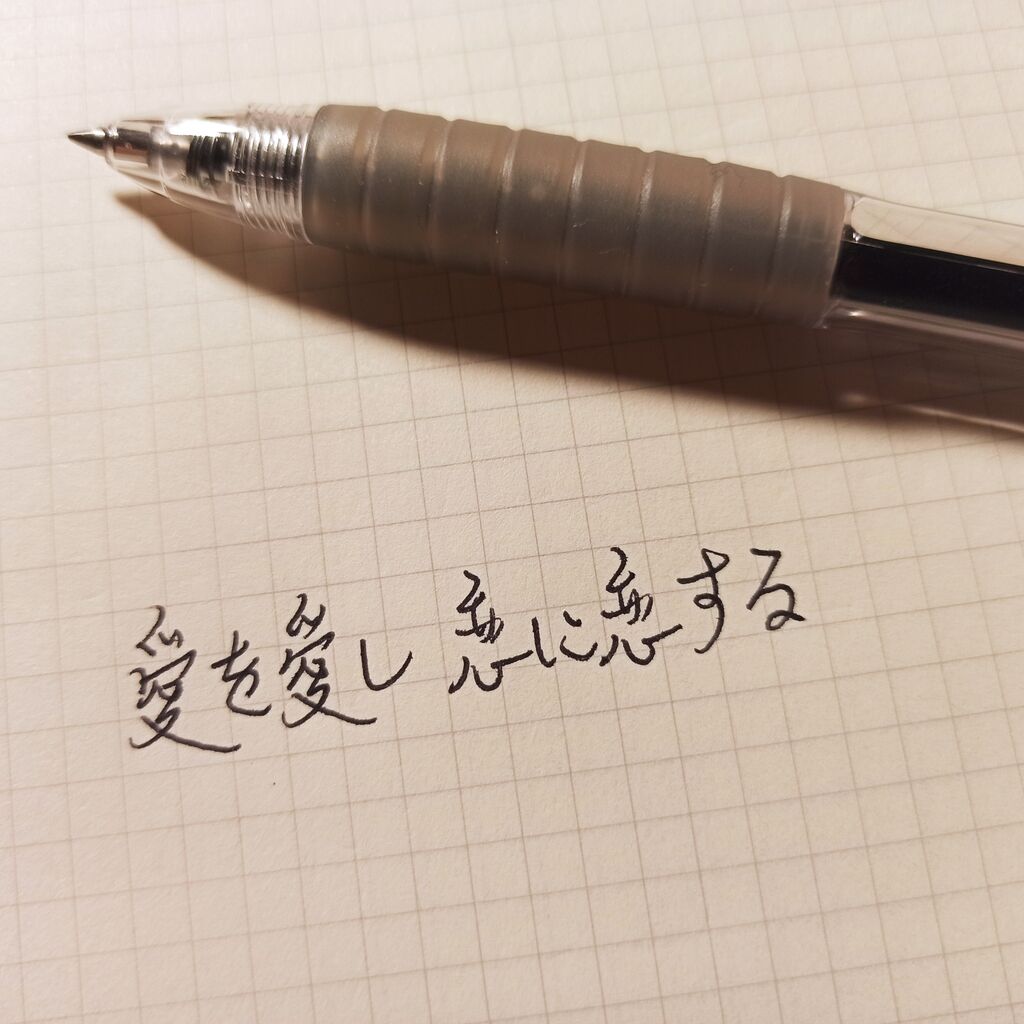 愛を愛し 恋に恋する